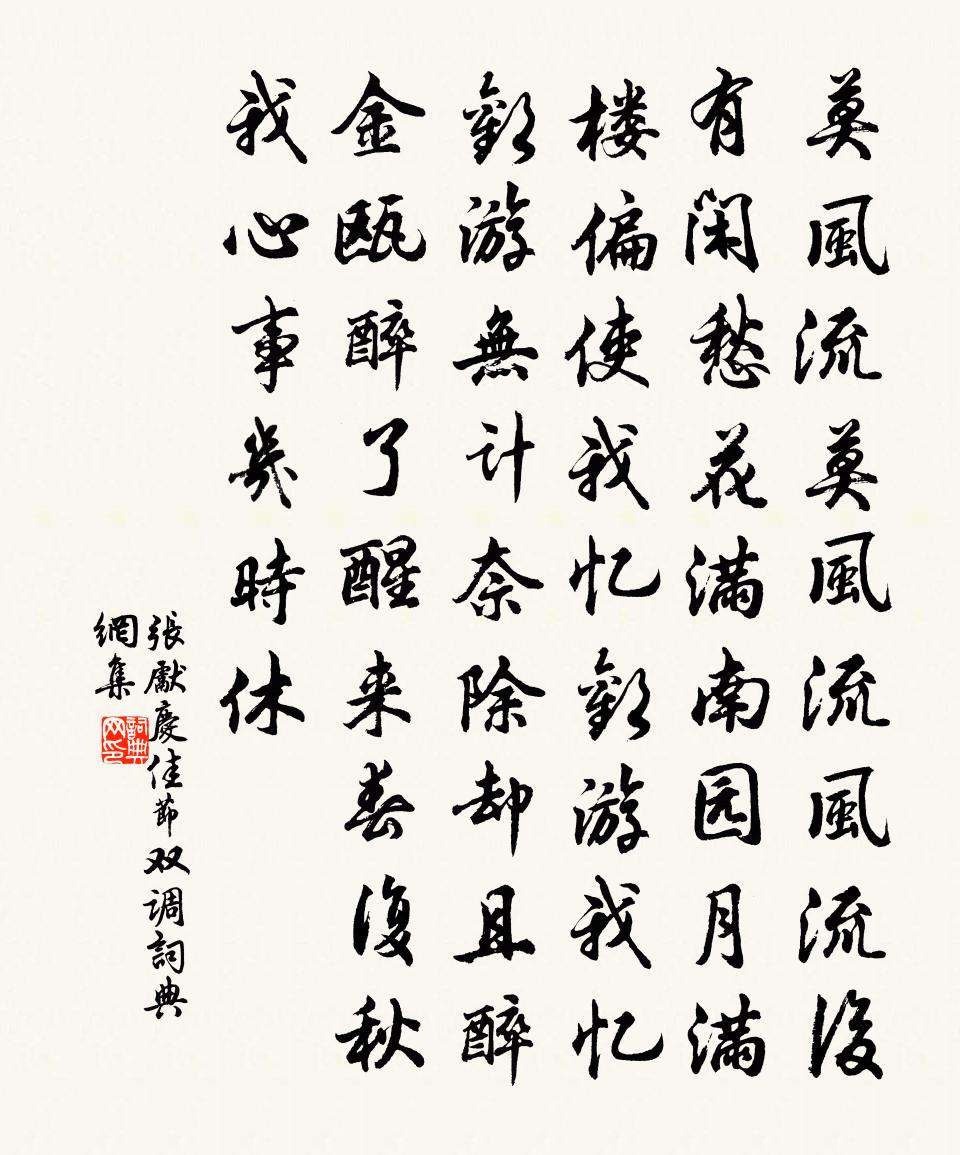 莫風流莫風流風流後
有閑愁花满南园月满
楼偏使我忆歡游我忆
歡游無计奈除却且醉
金瓯醉了醒来春復秋
我心事幾時休
張獻慶佳節双调詞典
網集
詞典网印